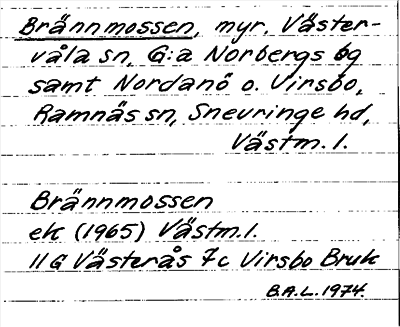 Brännmossen, myr, Väster-
våla sn, G:a Norbergs bg
samt Nordanö o. Virsbo,
Ramnäs sn, Snevringe hd,
Västm. l.
Brännmossen
ek (1965) Västm. l.
11 G Västerås 7c Virsbo Bruk
B.A.L. 1974.